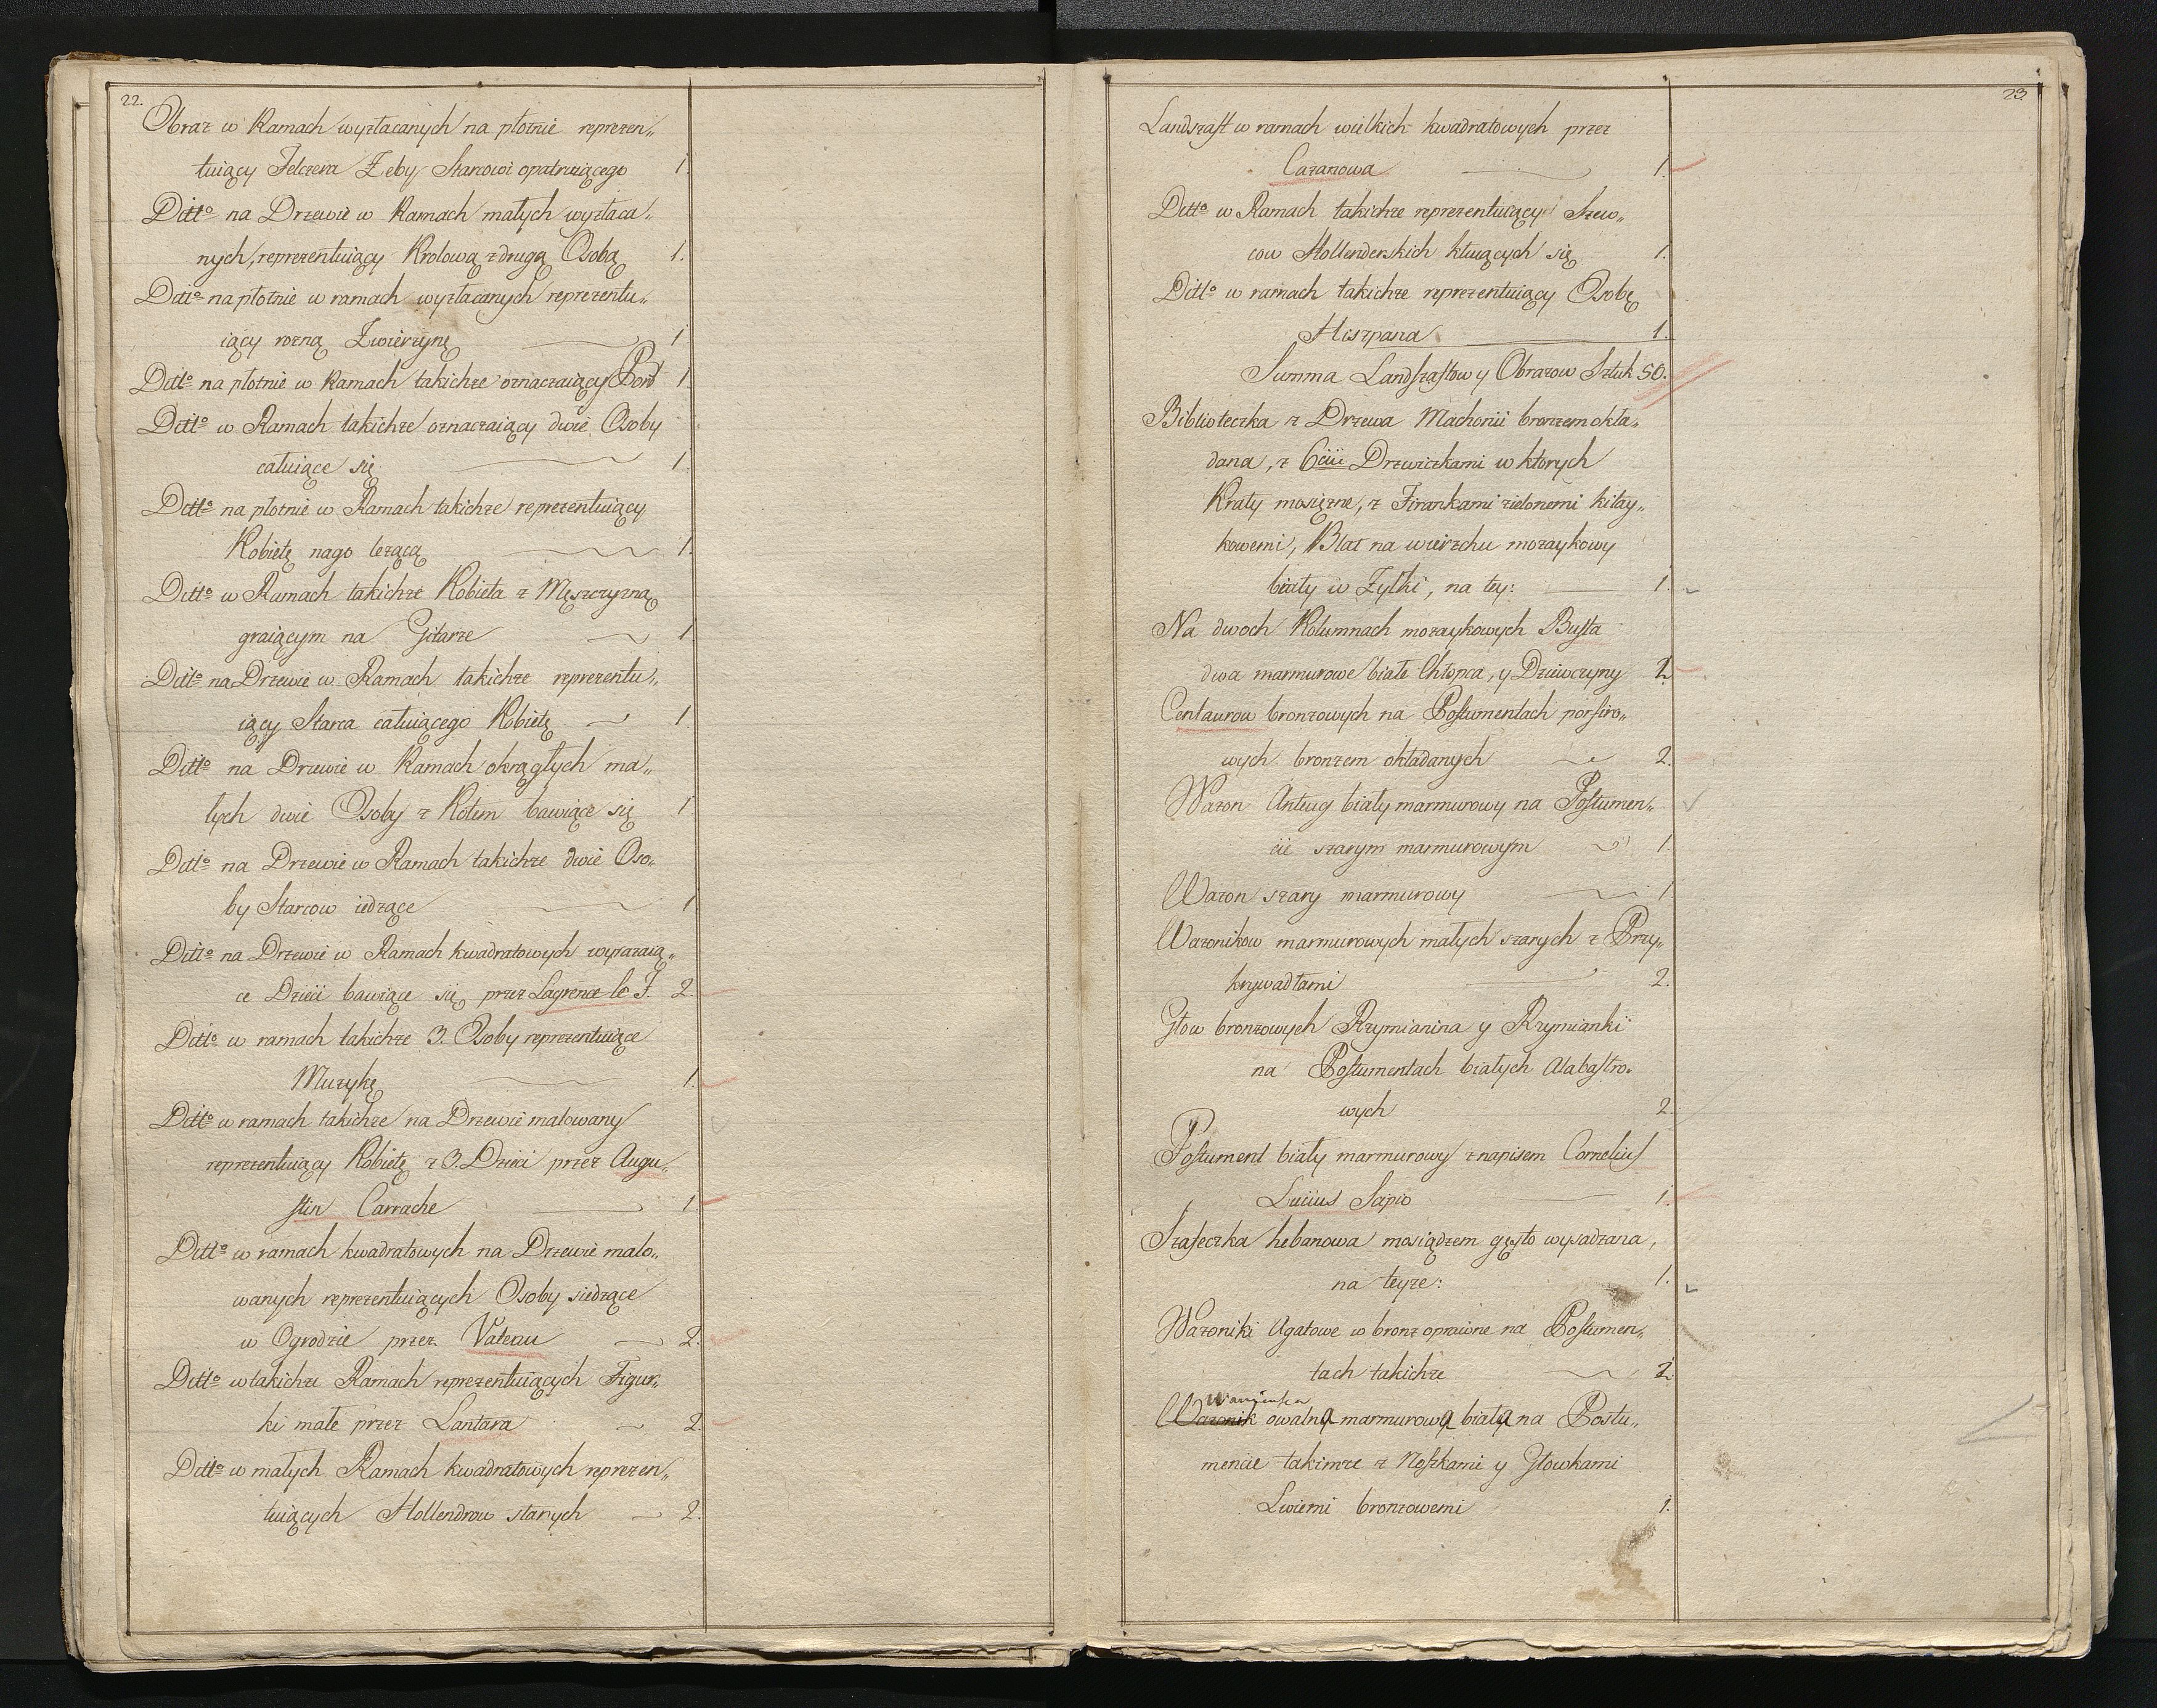 22.
Obraz w Ramach wyzłacanych na płotnie reprezen„
tuiący Felczera Zęby Starcowi opatruiącego 1.
Ditto na Drzewie w Ramach małych wyzłaca„
nych, reprezentuiący Krolową z drugą Osobą 1.
Ditto na płotnie w ramach wyzłacanych reprezentu„
iący rozną Zwierzynę 1
Ditto na płotnie w Ramach takichże oznaczaiący Port 1.
Ditto w Ramach takichże oznaczaiący dwie Osoby
całuiące się 1.
Ditto na płotnie w Ramach takichże reprezentuiący
Kobietę nago leżącą 1.
Ditto w Ramach takichże Kobieta z Męszczyzną
graiącym na Gitarze 1
Ditto na Drzewie w Ramach takichże reprezentu„
iący Starca całuiącego Kobietę 1
Ditto na Drzewie w Ramach okrągłych ma„
łych dwie Osoby z Kotem bawiące się 1.
Ditto na Drzewie w Ramach takichże dwie Oso„
by Starcow iedzące 1.
Ditto na Drzewie w Ramach kwadratowych wyrazaią„
ce Dzieci bawiące się przez Lagrence le J. 2.
Ditto w ramach takichże 3. Osoby reprezentuiące
Muzykę 1.
Ditto w ramach takichże na Drzewie malowany
reprezentuiący Kobietę z 3. Dzieci przez Augu„
stin Carrache 1
Ditto w ramach kwadratowych na Drzewie malo„
wanych reprezentuiących Osoby siedzące
w Ogrodzie przez Vateau 2.
Ditto w takichże Ramach reprezentuiących Figur„
ki małe przez Lantara 2.
Ditto w małych Ramach kwadratowych reprezen„
tuiących Hollendrow starych 2.
23
Landszaft w ramach wielkich kwadratowych przez
Cazanowa 1.
Ditto w Ramach takichże reprezentuiący Szew„
cow Hollenderskich kłuiących się 1.
Ditto w ramach takichże reprezentuiący Osobę
Hiszpana 1.
Summa Landszaftow y Obrazow Sztuk 50.
Biblioteczka z Drzewa Machonii bronzem okła„
dana, z 6ciu Drzwiczkami w ktorych
Kraty mosięzne, z Firankami zielonemi kitay„
kowemi, Blat na wierzchu mozaykowy
biały w Zyłki, na tey: 1.
Na dwoch Kolumnach mozaykowych Busta
dwa marmurowe białe Chłopca, y Dziewczyny 2
Centaurow bronzowych na Postumentach porfiro„
wych bronzem okładanych 2.
Wazon Antug biały marmurowy na Postumen„
cie szarym marmurowym 1.
Wazon szary marmurowy 1.
Wazonikow marmurowych małych szarych z Przy„
krywadłami 2.
Głow bronzowych Rzymianina y Rzymianki
na Postumentach białych Alabastro„
wych 2.
Postument biały marmurowy z napisem Cornelius
Lucius Scipio 1.
Szafeczka hebanowa mosiądzem gęsto wysadzana,
na teyże: 1.
Wazoniki Agatowe w bronz oprawne na Postumen„
tach takichże 2.
Wanienka
Wazonik owalną marmurową białą na Postu„
mencie takimże z Noszkami y Głowkami
Lwiemi bronzowemi 1.